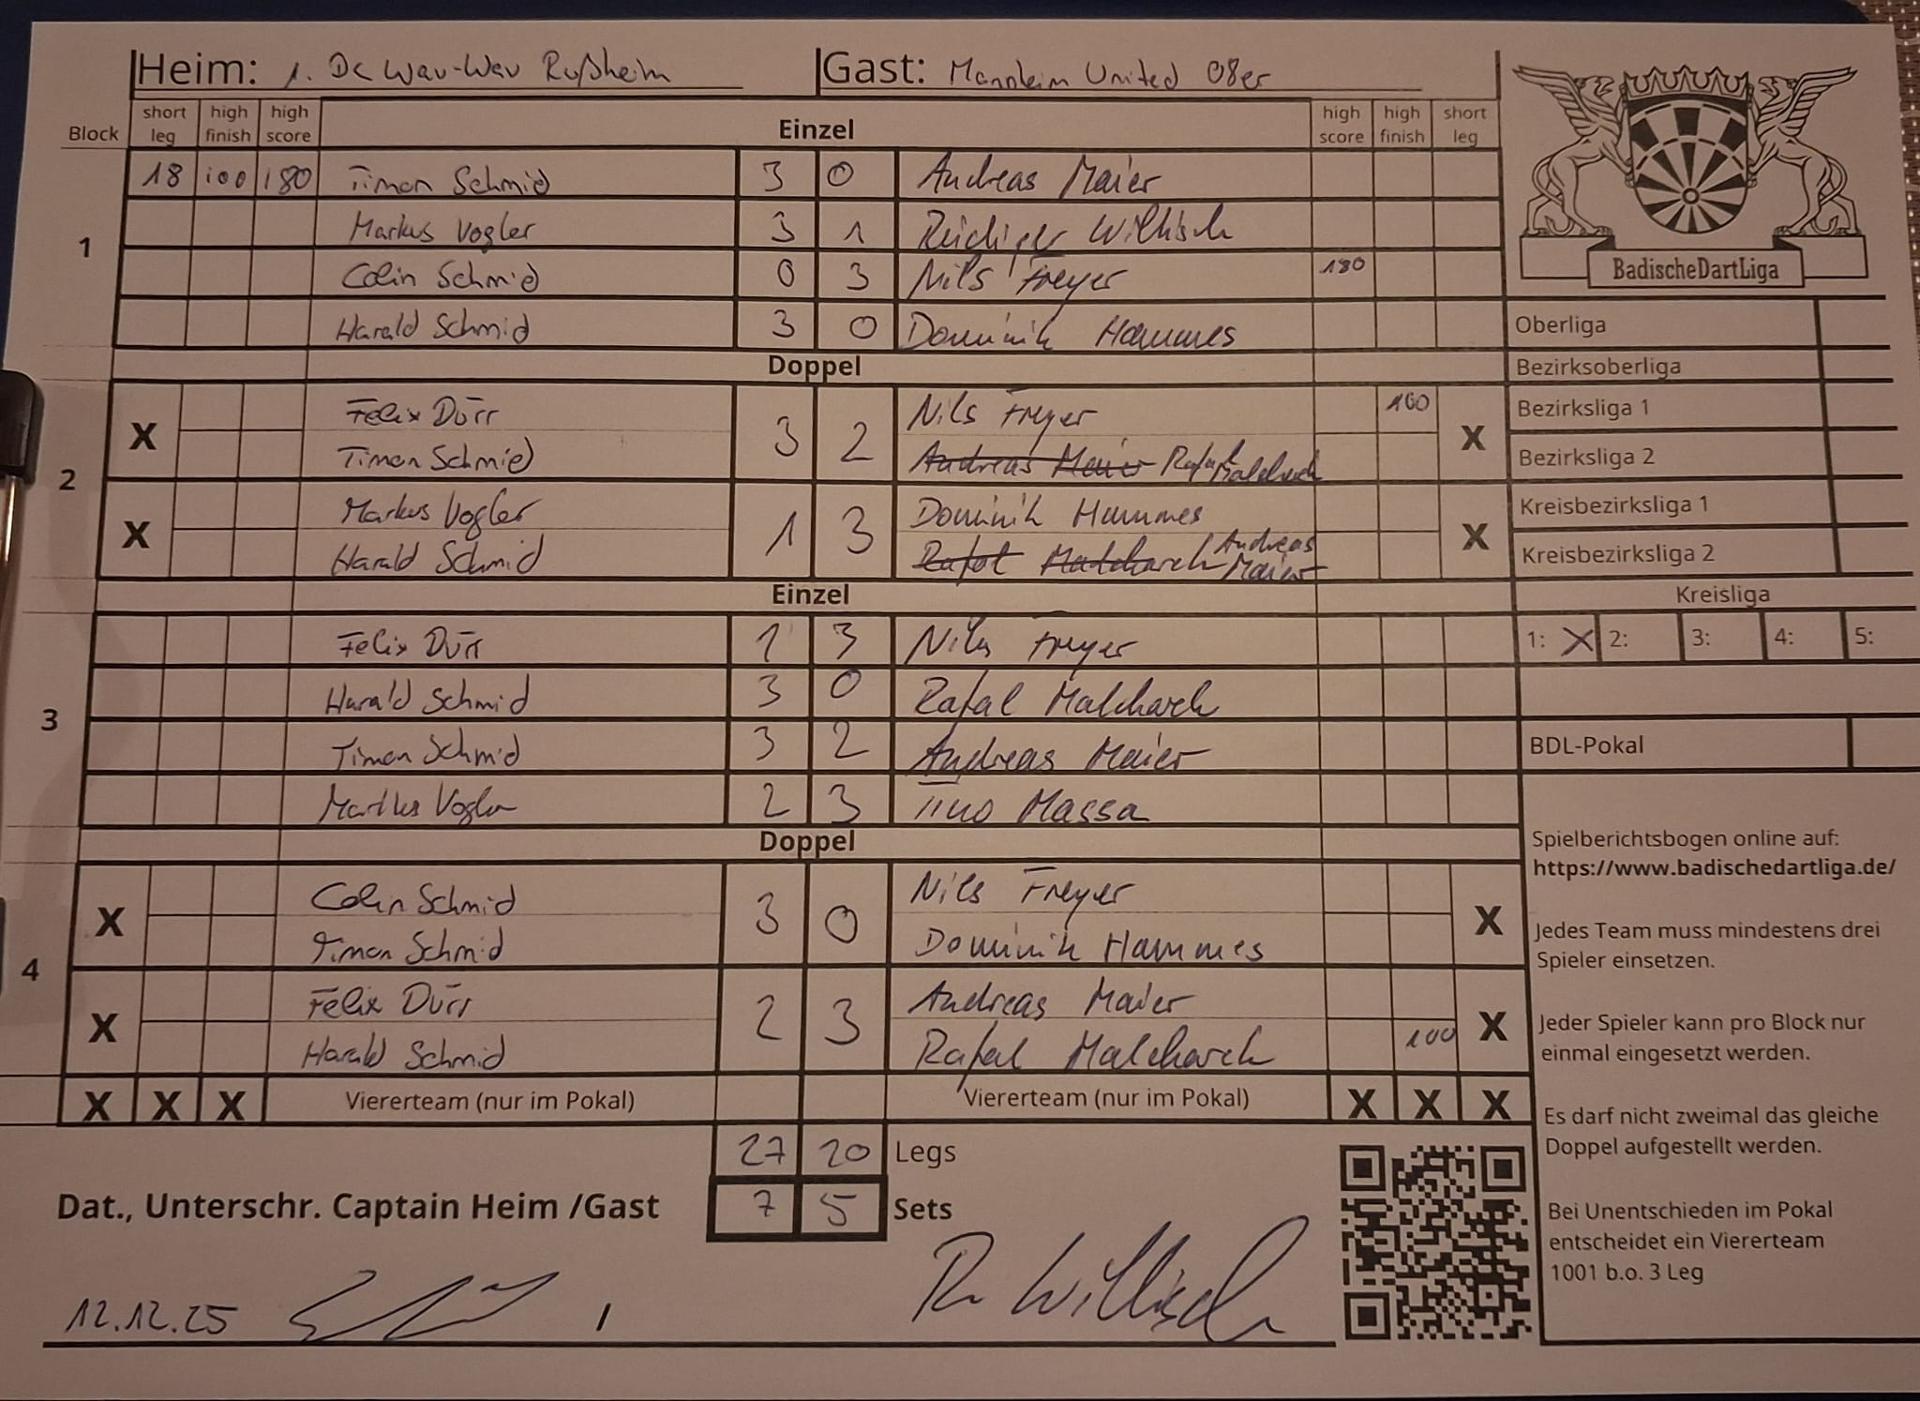 Heim: 1. DC Wau-Wau Rußheim Gast: Mannheim United 08er
Block short leg high finish high score Einzel high score high finish short leg
1
18 100 180 Timon Schmid 3 0 Andreas Maier
Markus Vogler 3 1 Rüdiger Willisch
Colin Schmid 0 3 Nils Freyer 180
Harald Schmid 3 0 Dominik Hammes
Doppel
2
X Felix Dürr 3 2 Nils Freyer 100 X
Timon Schmid Andreas Maier Rafal Malcharek
X Markus Vogler 1 3 Dominik Hammes X
Harald Schmid Rafal Malcharek Andreas Maier
Einzel
3
Felix Dürr 1 3 Nils Freyer
Harald Schmid 3 0 Rafal Malcharek
Timon Schmid 3 2 Andreas Maier
Markus Vogler 2 3 Tino Massa
Doppel
4
X Colin Schmid 3 0 Nils Freyer X
Timon Schmid Dominik Hammes
X Felix Dürr 2 3 Andreas Maier X
Harald Schmid Rafal Malcharek 100
X X X Viererteam (nur im Pokal) Viererteam (nur im Pokal) X X X
27 20 Legs
Dat., Unterschr. Captain Heim /Gast 7 5 Sets
12.12.25 / Willisch
BadischeDartLiga
Oberliga
Bezirksoberliga
Bezirksliga 1
Bezirksliga 2
Kreisbezirksliga 1
Kreisbezirksliga 2
Kreisliga
1: X 2: 3: 4: 5:
BDL-Pokal
Spielberichtsbogen online auf:
https://www.badischedartliga.de/
Jedes Team muss mindestens drei
Spieler einsetzen.
Jeder Spieler kann pro Block nur
einmal eingesetzt werden.
Es darf nicht zweimal das gleiche
Doppel aufgestellt werden.
Bei Unentschieden im Pokal
entscheidet ein Viererteam
1001 b.o. 3 Leg